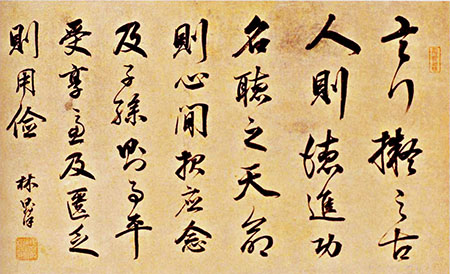 言行擬之古
人則德進功
名聽之天命
則心閒報應念
及子孫則事平
受享慮及匱乏
則用儉
林